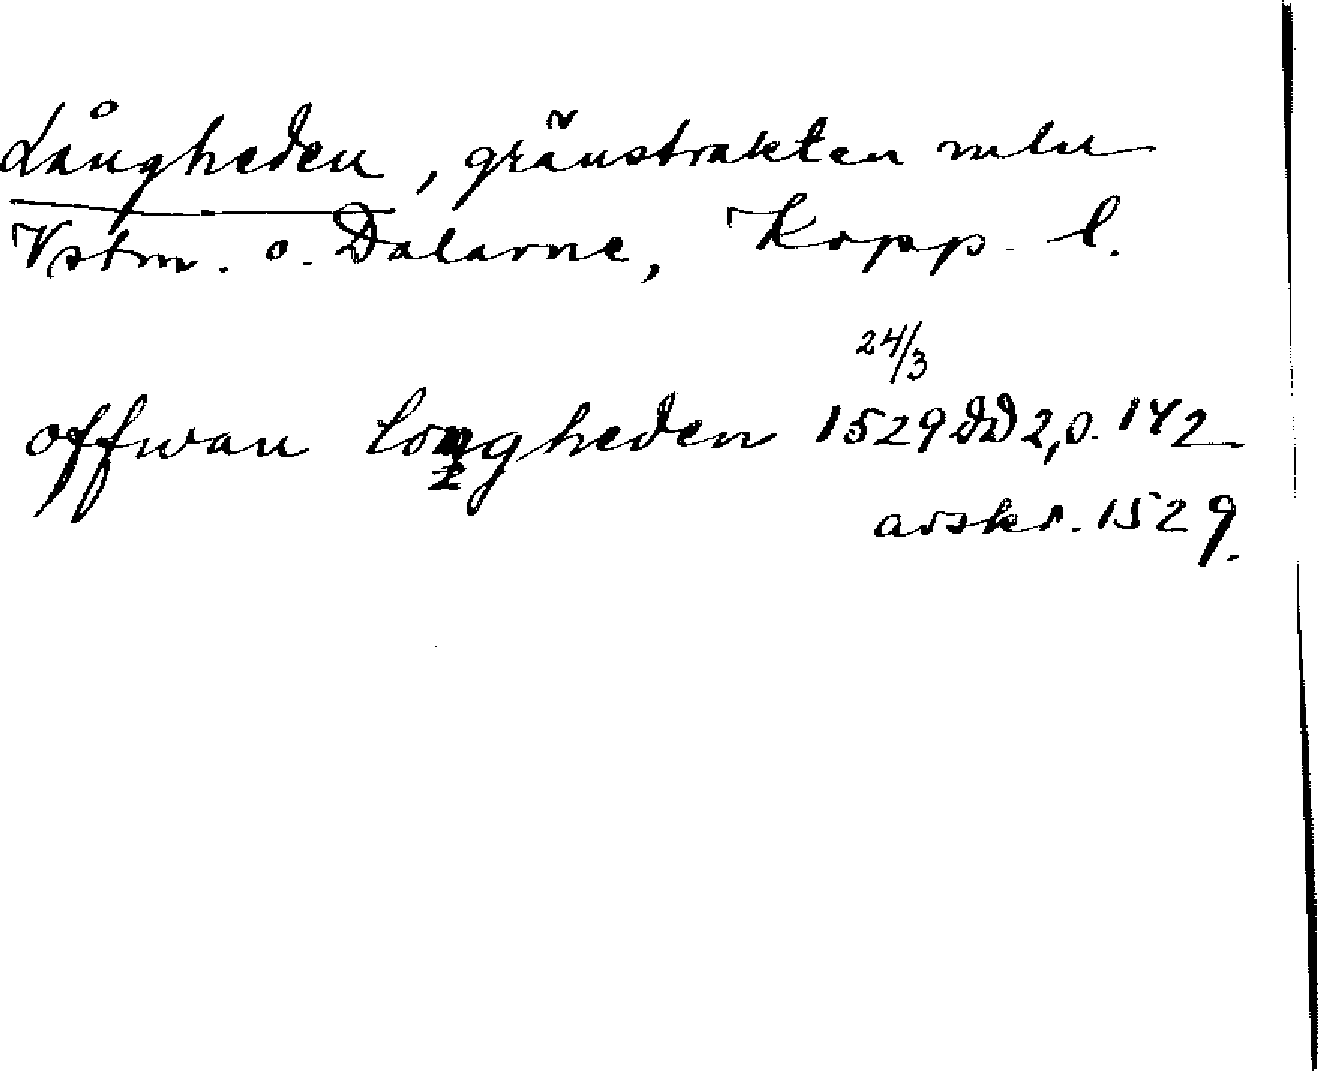 Långheden, gränstrakten mln
Vstm. o. Dalarne, Kopp. l.
24/3
offwan longheden 1529 DD 2, s. 142
avskr. 1529.